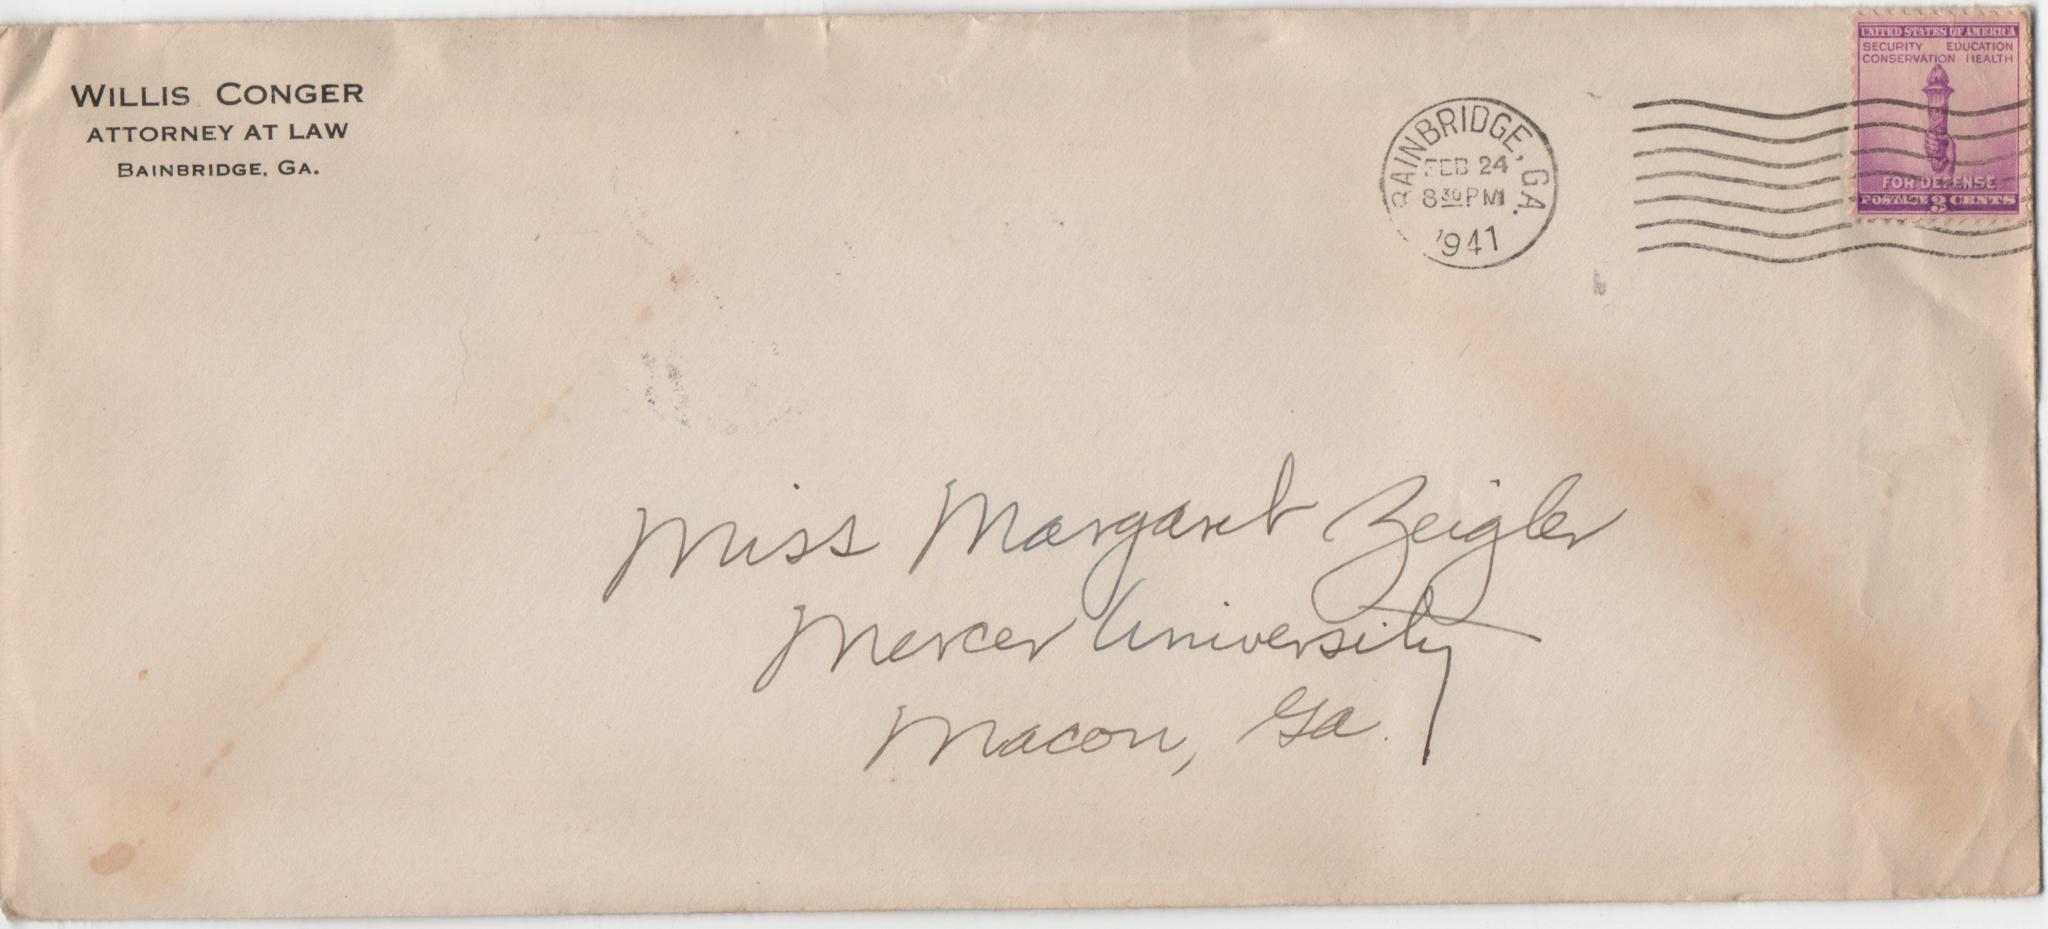 WILLIS CONGER
ATTORNEY AT LAW
BAINBRIDGE, GA.
BAINBRIDGE, GA.
FEB 24
8 30 PM
1941
UNITED STATES OF AMERICA
SECURITY EDUCATION
CONSERVATION HEALTH
FOR DEFENSE
POSTAGE 3 CENTS
Miss Margaret Zeigler
Mercer University
Macon, Ga.